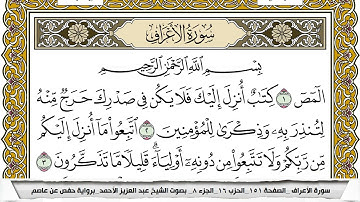 سُورَةُ الأَعْرَافِ
بِسْمِ اللَّهِ الرَّحْمَٰنِ الرَّحِيمِ
الٓمٓصٓ ١ كِتَٰبٌ أُنزِلَ إِلَيْكَ فَلَا يَكُن فِى صَدْرِكَ حَرَجٌ مِّنْهُ
لِتُنذِرَ بِهِۦ وَذِكْرَىٰ لِلْمُؤْمِنِينَ ٢ ٱتَّبِعُوا۟ مَآ أُنزِلَ إِلَيْكُم
مِّن رَّبِّكُمْ وَلَا تَتَّبِعُوا۟ مِن دُونِهِۦٓ أَوْلِيَآءَ ۗ قَلِيلًا مَّا تَذَكَّرُونَ ٣
سورة الأعراف _الصفحة ١٥١_ الحزب ١٦_ الجزء ٨_ بصوت الشيخ عبد العزيز الأحمد_ برواية حفص عن عاصم